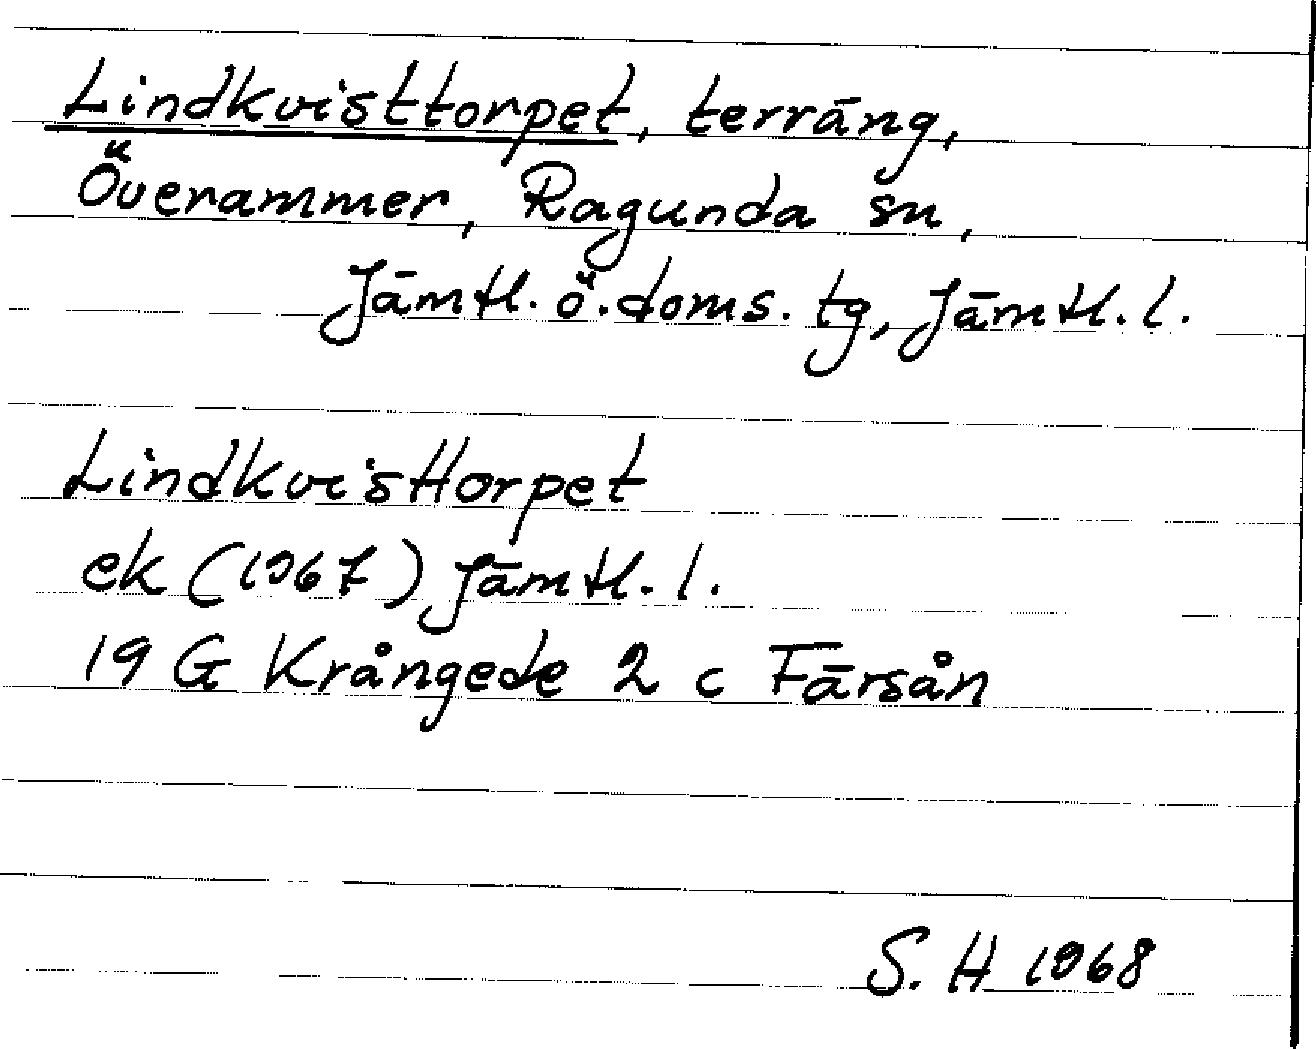 Lindkvisttorpet, terräng,
Överammer, Ragunda sn,
Jämtl. ö. doms. tg, Jämtl. l.
Lindkvisttorpet
ek (1967) Jämtl. l.
19 G Krångede 2 c Färsån
S. H 1968